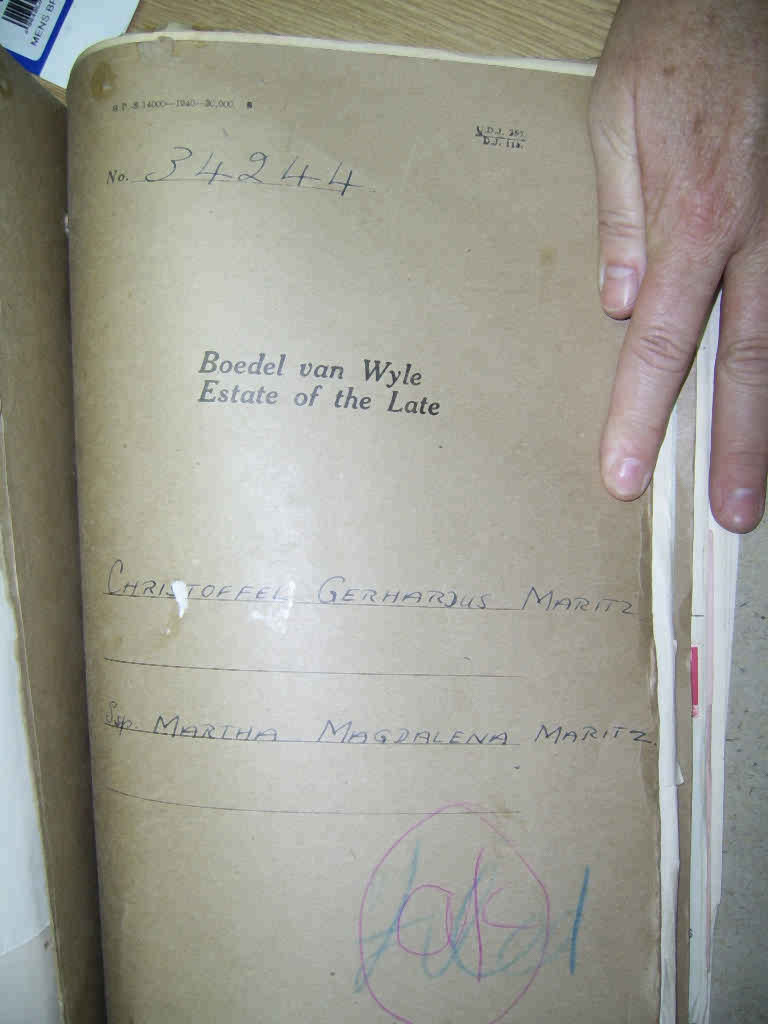 MENS
G.P.-S.14000—1940—20,000. S
U.D.J. 257.
D.J. 113.
No. 34244
Boedel van Wyle
Estate of the Late
CHRISTOFFEL GERHARDUS MARITZ
Ssp. MARTHA MAGDALENA MARITZ.